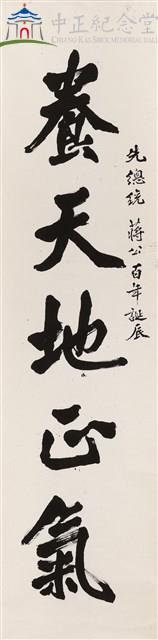 中正紀念堂
CHIANG KAI-SHEK MEMORIAL HALL
先總統 蔣公百年誕辰
養天地正氣